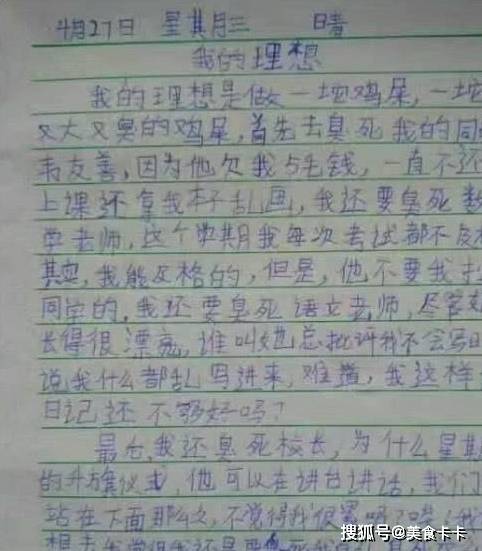 4月27日 星其月三 晴
我的理想
我的理想是做一坨鸡屎，一坨
又大又臭的鸡屎，首先去臭死我的同
韦友善，因为他欠我5毛钱，一直不还
上课还拿我本子乱画，我还要臭死数
学老师，这个学期我每次考试都不及格
其实，我能及格的，但是，他不要我抄
同学的，我还要臭死语文老师，尽管她
长得很漂亮，谁叫她总批评我不会写日
说我什么都乱写进来，难道，我这样
日记还不够好吗？
最后，我还臭死校长，为什么星期
的升旗仪式，他可以在讲台讲话，我们
站在下面那么久，不觉得我很累吗？
搜狐号@美食卡卡